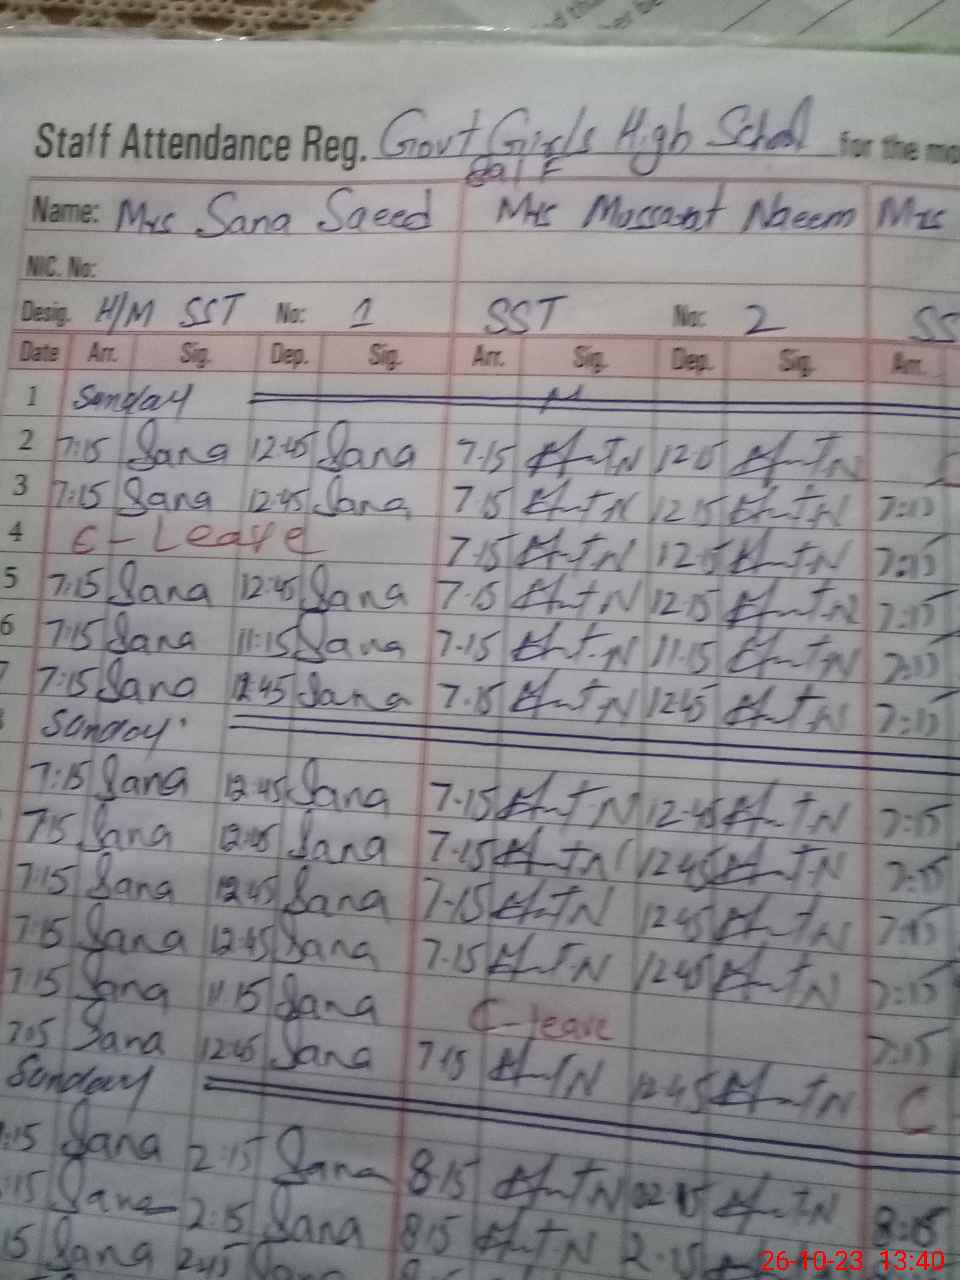 Staff Attendance Reg. Govt Girls High School for the mo
Name: Mrs Sana Saeed Mrs Mossarat Naeem Mrs
NIC. No:
Desig. H/M SST No: 1 SST No: 2 SS
Date Arr. Sig. Dep. Sig. Arr. Sig. Dep. Sig. Arr.
1 Sunday
2 7:15 Sana 12:45 Sana 7-15 TN 12:15 TN
3 7:15 Sana 12:45 Sana 7.15 TN 12 15 TN 7:15
4 C-Leave 7.15 TN 12:15 TN 7:15
5 7:15 Sana 12:45 Sana 7.15 TN 12:15 TN 7:15
6 7:15 Sana 11:15 Sana 7.15 TN 11.15 TN 7:15
7 7:15 Sana 12:45 Sana 7.15 TN 1245 TN 7:15
Sunday
7:15 Sana 12:45 Sana 7.15 TN 12.45 TN 7:15
7:15 Sana 12:45 Sana 7.15 TN 1245 TN 7:15
7:15 Sana 12:45 Sana 7-15 TN 1245 TN 7:15
7:15 Sana 12:45 Sana 7.15 TN 1245 TN 7:15
7:15 Sana 11:15 Sana C-leave 7:15
7:05 Sana 12:45 Sana 7.15 TN 12.45 TN C
Sunday
:15 Sana 2:15 Sana 8.15 TN 02.15 TN
:15 Sana 2:15 Sana 8:15 TN 2.15 8:15
15 Sana 2:15
26-10-23 13:40